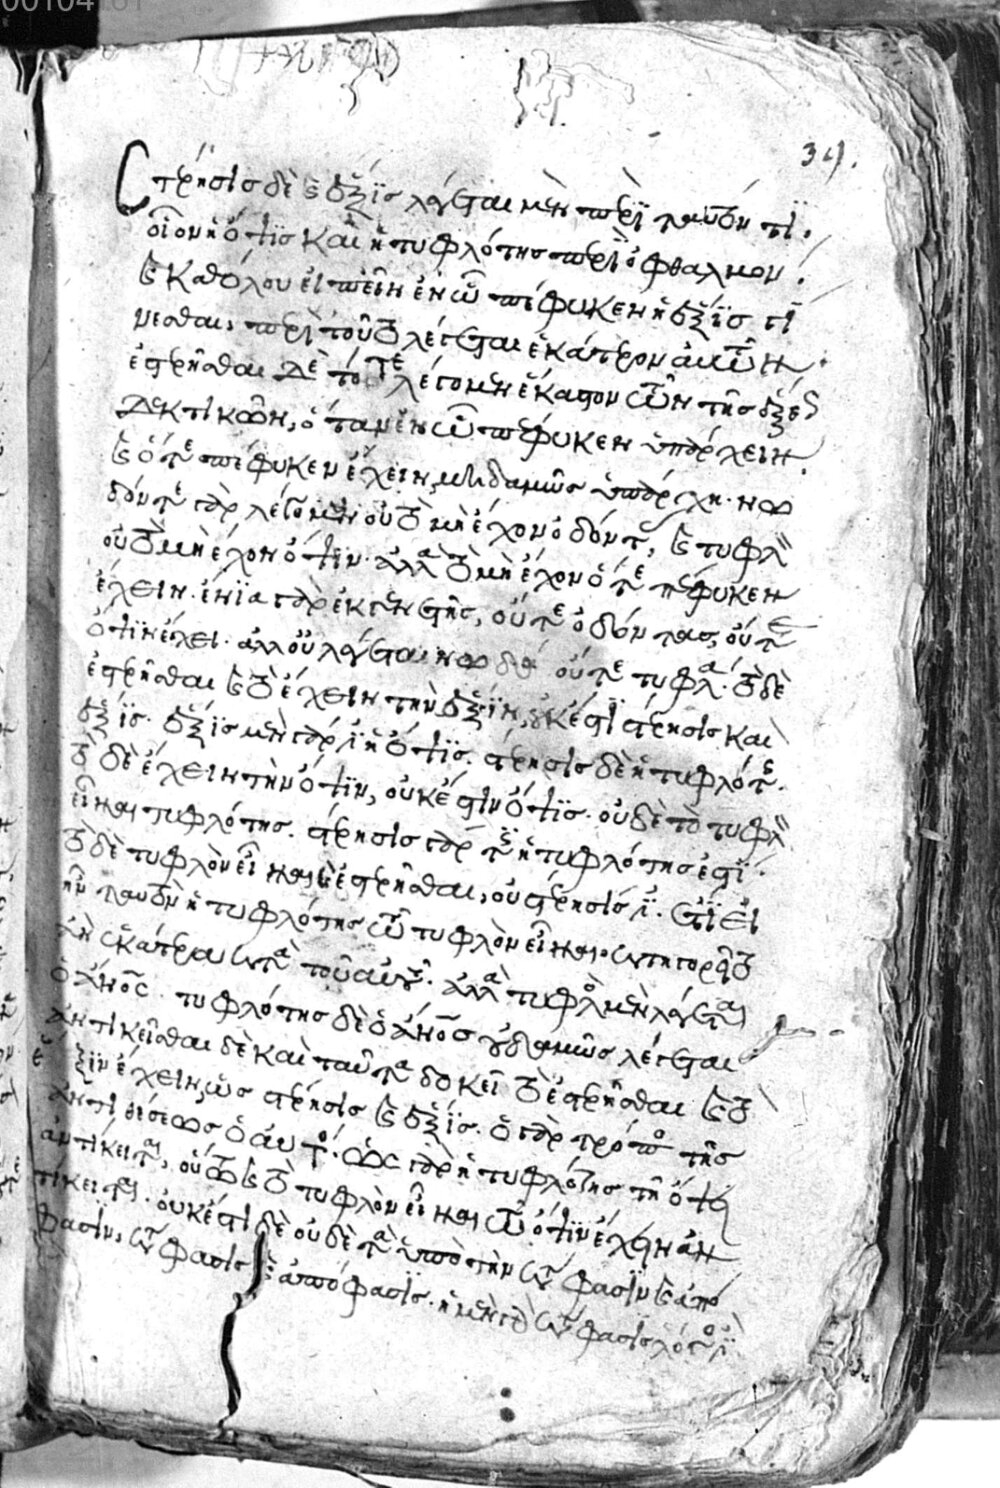 00104161
39.
Στρησις δὲ καὶ ἕξις λέγεται μὲν περὶ ταυτόν τι.
οἷον ἡ ὄψις καὶ ἡ τυφλότης περὶ ὀφθαλμόν.
καὶ καθόλου εἰπεῖν ἐν ᾧ πέφυκεν ἡ ἕξις γί
νεσθαι, περὶ τοῦτο λέγεται ἑκάτερον αὐτῶν.
ἐστερῆσθαι δὲ τότε λέγομεν ἕκαστον τῶν τῆς ἕξεως
δεκτικῶν, ὅταν ἐν ᾧ πέφυκεν ὑπάρχειν
καὶ ὅτε πέφυκεν ἔχειν, μηδαμῶς ὑπάρχη. νω
δόν τε γὰρ λέγομεν οὐ τὸ μὴ ἔχον ὀδόντας, καὶ τυφλὸν
οὐ τὸ μὴ ἔχον ὄψιν. ἀλλὰ τὸ μὴ ἔχον ὅτε πέφυκεν
ἔχειν. ἔνια γὰρ ἐκ γενετῆς, οὔτε ὀδόντας, οὔτε
ὄψιν ἔχει. ἀλλ' οὐ λέγεται νωδὰ οὔτε τυφλά. τὸ δὲ
ἐστερῆσθαι καὶ τὸ ἔχειν τὴν ἕξιν, οὐκ ἔστι στέρησις καὶ
ἕξις. ἕξις μὲν γάρ ἐστιν ἡ ὄψις. στέρησις δὲ ἡ τυφλότης.
τὸ δὲ ἔχειν τὴν ὄψιν, οὐκ ἔστιν ὄψις. οὐδὲ τὸ τυφλὸν
εἶναι τυφλότης. στέρησις γάρ τις ἡ τυφλότης ἐστί.
τὸ δὲ τυφλὸν εἶναι ἐστερῆσθαι, οὐ στέρησίς ἐστιν. ἔτι εἰ
ἦν ταυτὸν ἡ τυφλότης τῷ τυφλὸν εἶναι. κατηγορεῖτο
ἂν ἑκάτερα κατὰ τοῦ αὐτοῦ. ἀλλὰ τυφλὸς μὲν λέγεται
ὁ ἄνος. τυφλότης δὲ ὁ ἄνος οὐδαμῶς λέγεται
ἀντικεῖσθαι δὲ καὶ ταῦτα δοκεῖ τὸ ἐστερῆσθαι καὶ τὸ
ἕξιν ἔχειν, ὡς στέρησις καὶ ἕξις. ὁ γὰρ τρόπος τῆς
ἀντιθέσεως ὁ αὐτός. ὡς γὰρ ἡ τυφλότης τῆ ὄψει
ἀντίκειται, οὕτω καὶ τὸ τυφλὸν εἶναι τῷ ὄψιν ἔχειν ἀν
τίκειται. οὐκ ἔστι δὲ οὐδὲ τὰ ὑπὸ τὴν κατάφασιν καὶ ἀπό
φασιν, κατάφασις καὶ ἀπόφασις. ἡ μὲν γὰρ κατάφασις λόγος ἐστὶ